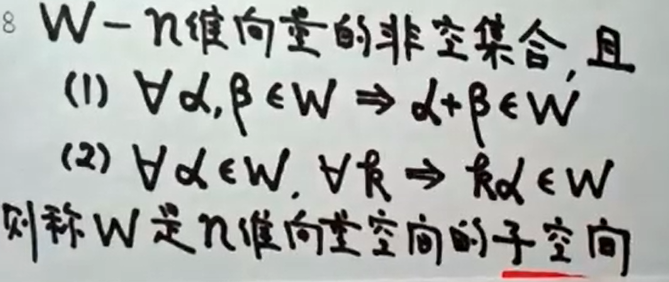 8 W-n维向量的非空集合,且
(1) ∀α,β∈W⇒α+β∈W
(2) ∀α∈W, ∀k⇒kα∈W
则称W是n维向量空间的子空间